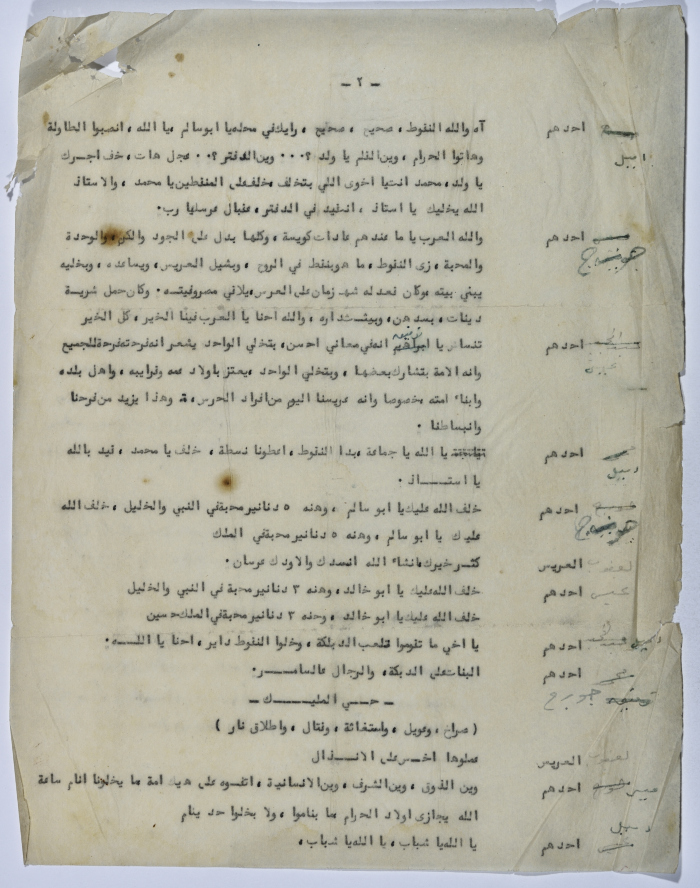 - ٢ -
احدهم آه والله النقوط ، صحيح ، صحيح ، رايك في محله يا ابو سالم ، يا الله ، انصبوا الطاولة
نبيل وهاتوا الحرام ، وين القلم يا ولد ؟ ٠٠٠ وين الدفتر ؟ ٠٠ عجل هات ، خف اجرك
يا ولد ، محمد انت يا اخوى اللي بتخلف ، خلف على المنقطين يا محمد ، والاستاذ
الله يخليك يا استاذ ، انقيد في الدفتر ، عقبال عرسك يا رب ٠
احدهم والله العرب يا ما عندهم عادات كويسة ، وكلها بدل على الجود والكرم والوحدة
جورج والمحبة ، زى النقوط ، ما هو بنقط في الروح ، وبشيل العريس ، ويساعده ، وبخليه
يبني بيته وكان نعد له شهر زمان على العرس يلاقي مصروفيته ٠ وكان حمل شرية
دينات ، بسدهن ، وبيت داره ، والله احنا يا العرب فينا الخير ، كل الخير
احدهم تنساش يا ابراهيم انه في معاني احسن ، بتخلي الواحد يشعر انه فرحته فرحة للجميع
وانه الامة بتشارك بعضها ، وبتخلي الواحد يعتز باولاد عمه وقرايبه ، واهل بلده
وابناء امته خصوصا وانه عريسنا اليوم من افراد الحرس ، وهذا يزيد من فرحنا
وانبساطنا ٠
احدهم يا الله يا جماعة ، بدا النقوط ، اعطونا نسطة ، خلف يا محمد ، قيد بالله
نبيل يا استـــــاذ ٠
احدهم خلف الله عليك يا ابو سالم ، وهنه ٥ دنانير محبة في النبي والخليل ، خلف الله
جورج عليك يا ابو سالم ، وهنه ٥ دنانير محبة في الملك
العريس كثـر خيرك انشاء الله انسدك والاولادك عرسان ٠
احدهم خلف الله عليك يا ابو خالد ، وهنه ٣ دنانير محبة في النبي والخليل
خلف الله عليك يا ابو خالد ، وهنه ٣ دنانير محبة في الملك حسين
احدهم يا اخي ما تقوموا نلعب الدبكة ، وخلوا النقوط داير ، احنا يا اللـــه ٠
احدهم البنات على الدبكة ، والرجال عالسامـــــر ٠
جورج
( صراخ ، وعويل ، واستغاثة ، وقتال ، واطلاق نار )
العريس عملوها اخس على الانـــذال
احدهم وين الذوق ، وين الشرف ، وين الانسانية ، اتفسوه على هيك امة ما يخلونا انام ساعة
الله يجازى اولاد الحرام ما بناموا ، ولا بخلوا حد ينام
نبيل
احدهم يا الله يا شباب ، يا الله يا شباب ،